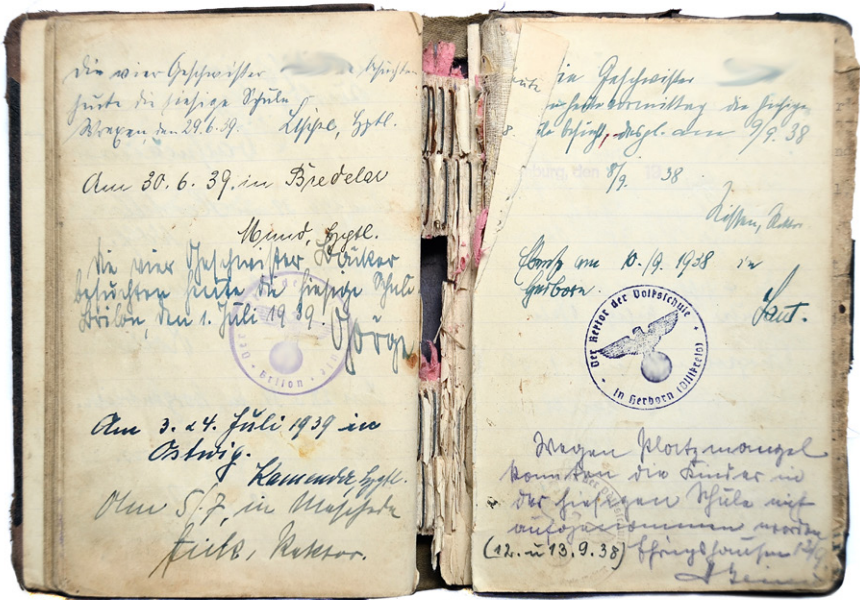 Die vier Geschwister besuchten
heute die hiesige Schule
Wrexen, den 29.6.39. Hptl.
Am 30.6.39. in Bredelar
Mund, Hptl.
Die vier Geschwister Bäcker
besuchten heute die hiesige Schule
Brilon, den 1. Juli 1939.
Brilon
Am 3. u 4. Juli 1939 in
Ostwig.
Hptl.
Am 5./7. in Meschede
Rektor.
die Geschwister
heute vormittag die hiesige
besucht, desgl. am 9/9. 38
8/9. 38
Rektor
Ebenso am 10./9. 1938 in
Herborn.
Der Rektor der Volksschule
in Herborn (Dillkreis)
Wegen Platzmangel
konnten die Kinder in
der hiesigen Schule nicht
aufgenommen werden
(12. u 13.9.38) Ehringshausen 12/9.